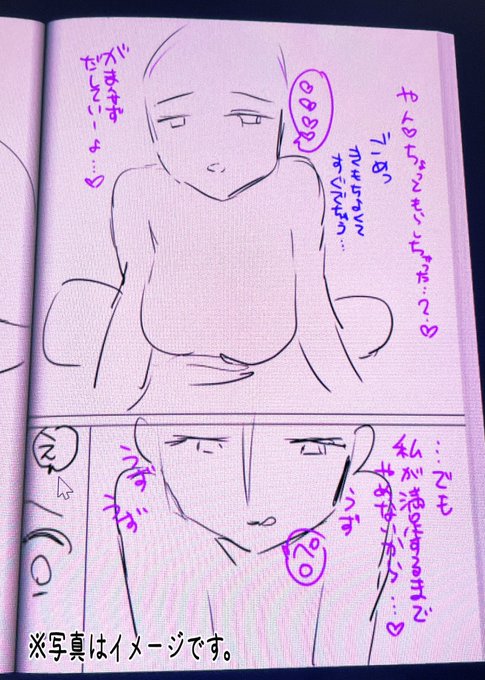 やん♡ちょっともらしちゃった…?♡
ごめっ
きもちよくて
すぐでちゃう…
がまんせず
だしていーよ…♡
…でも
私が満足するまで
やめないから…♡
うず
ペロ
うず
うず
※写真はイメージです。